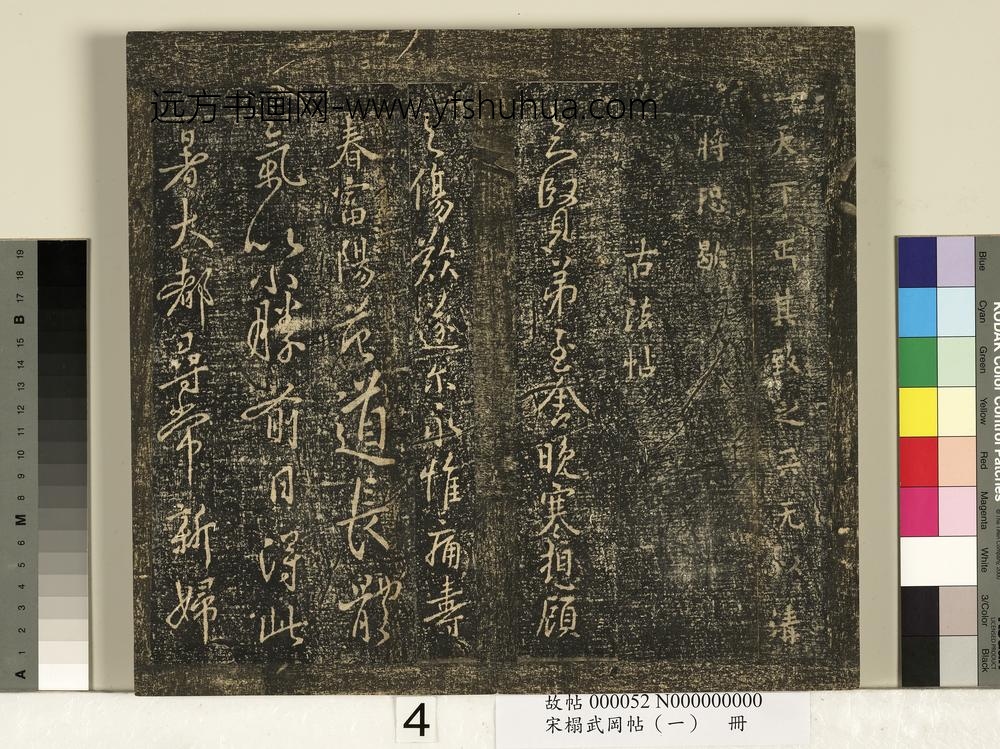 远方书画网-www.yfshuhua.com
一天下正其致之一天無以清
將恐歇
古法帖
賢弟至奉晚寒想顧
之傷歎遂尔永惟痛壽
春富陽若道長體
氣以小勝前日得此
暑大都尋常新婦
4
故帖 000052 N000000000
宋榻武岡帖（一） 冊
19
18
17
B
16
15
14
13
12
11
10
9
8
M
6
5
4
3
2
1
A
KODAK Color Control Patches
Blue
Cyan
Green
Yellow
Red
Magenta
White
3/Color
Black